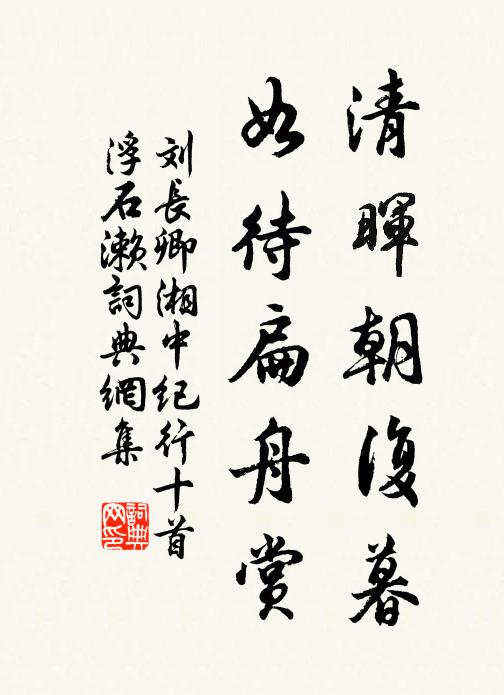 清暉朝復暮
如待扁舟賞
刘長卿湘中纪行十首
浮石瀨詞典網集
詞典
网印